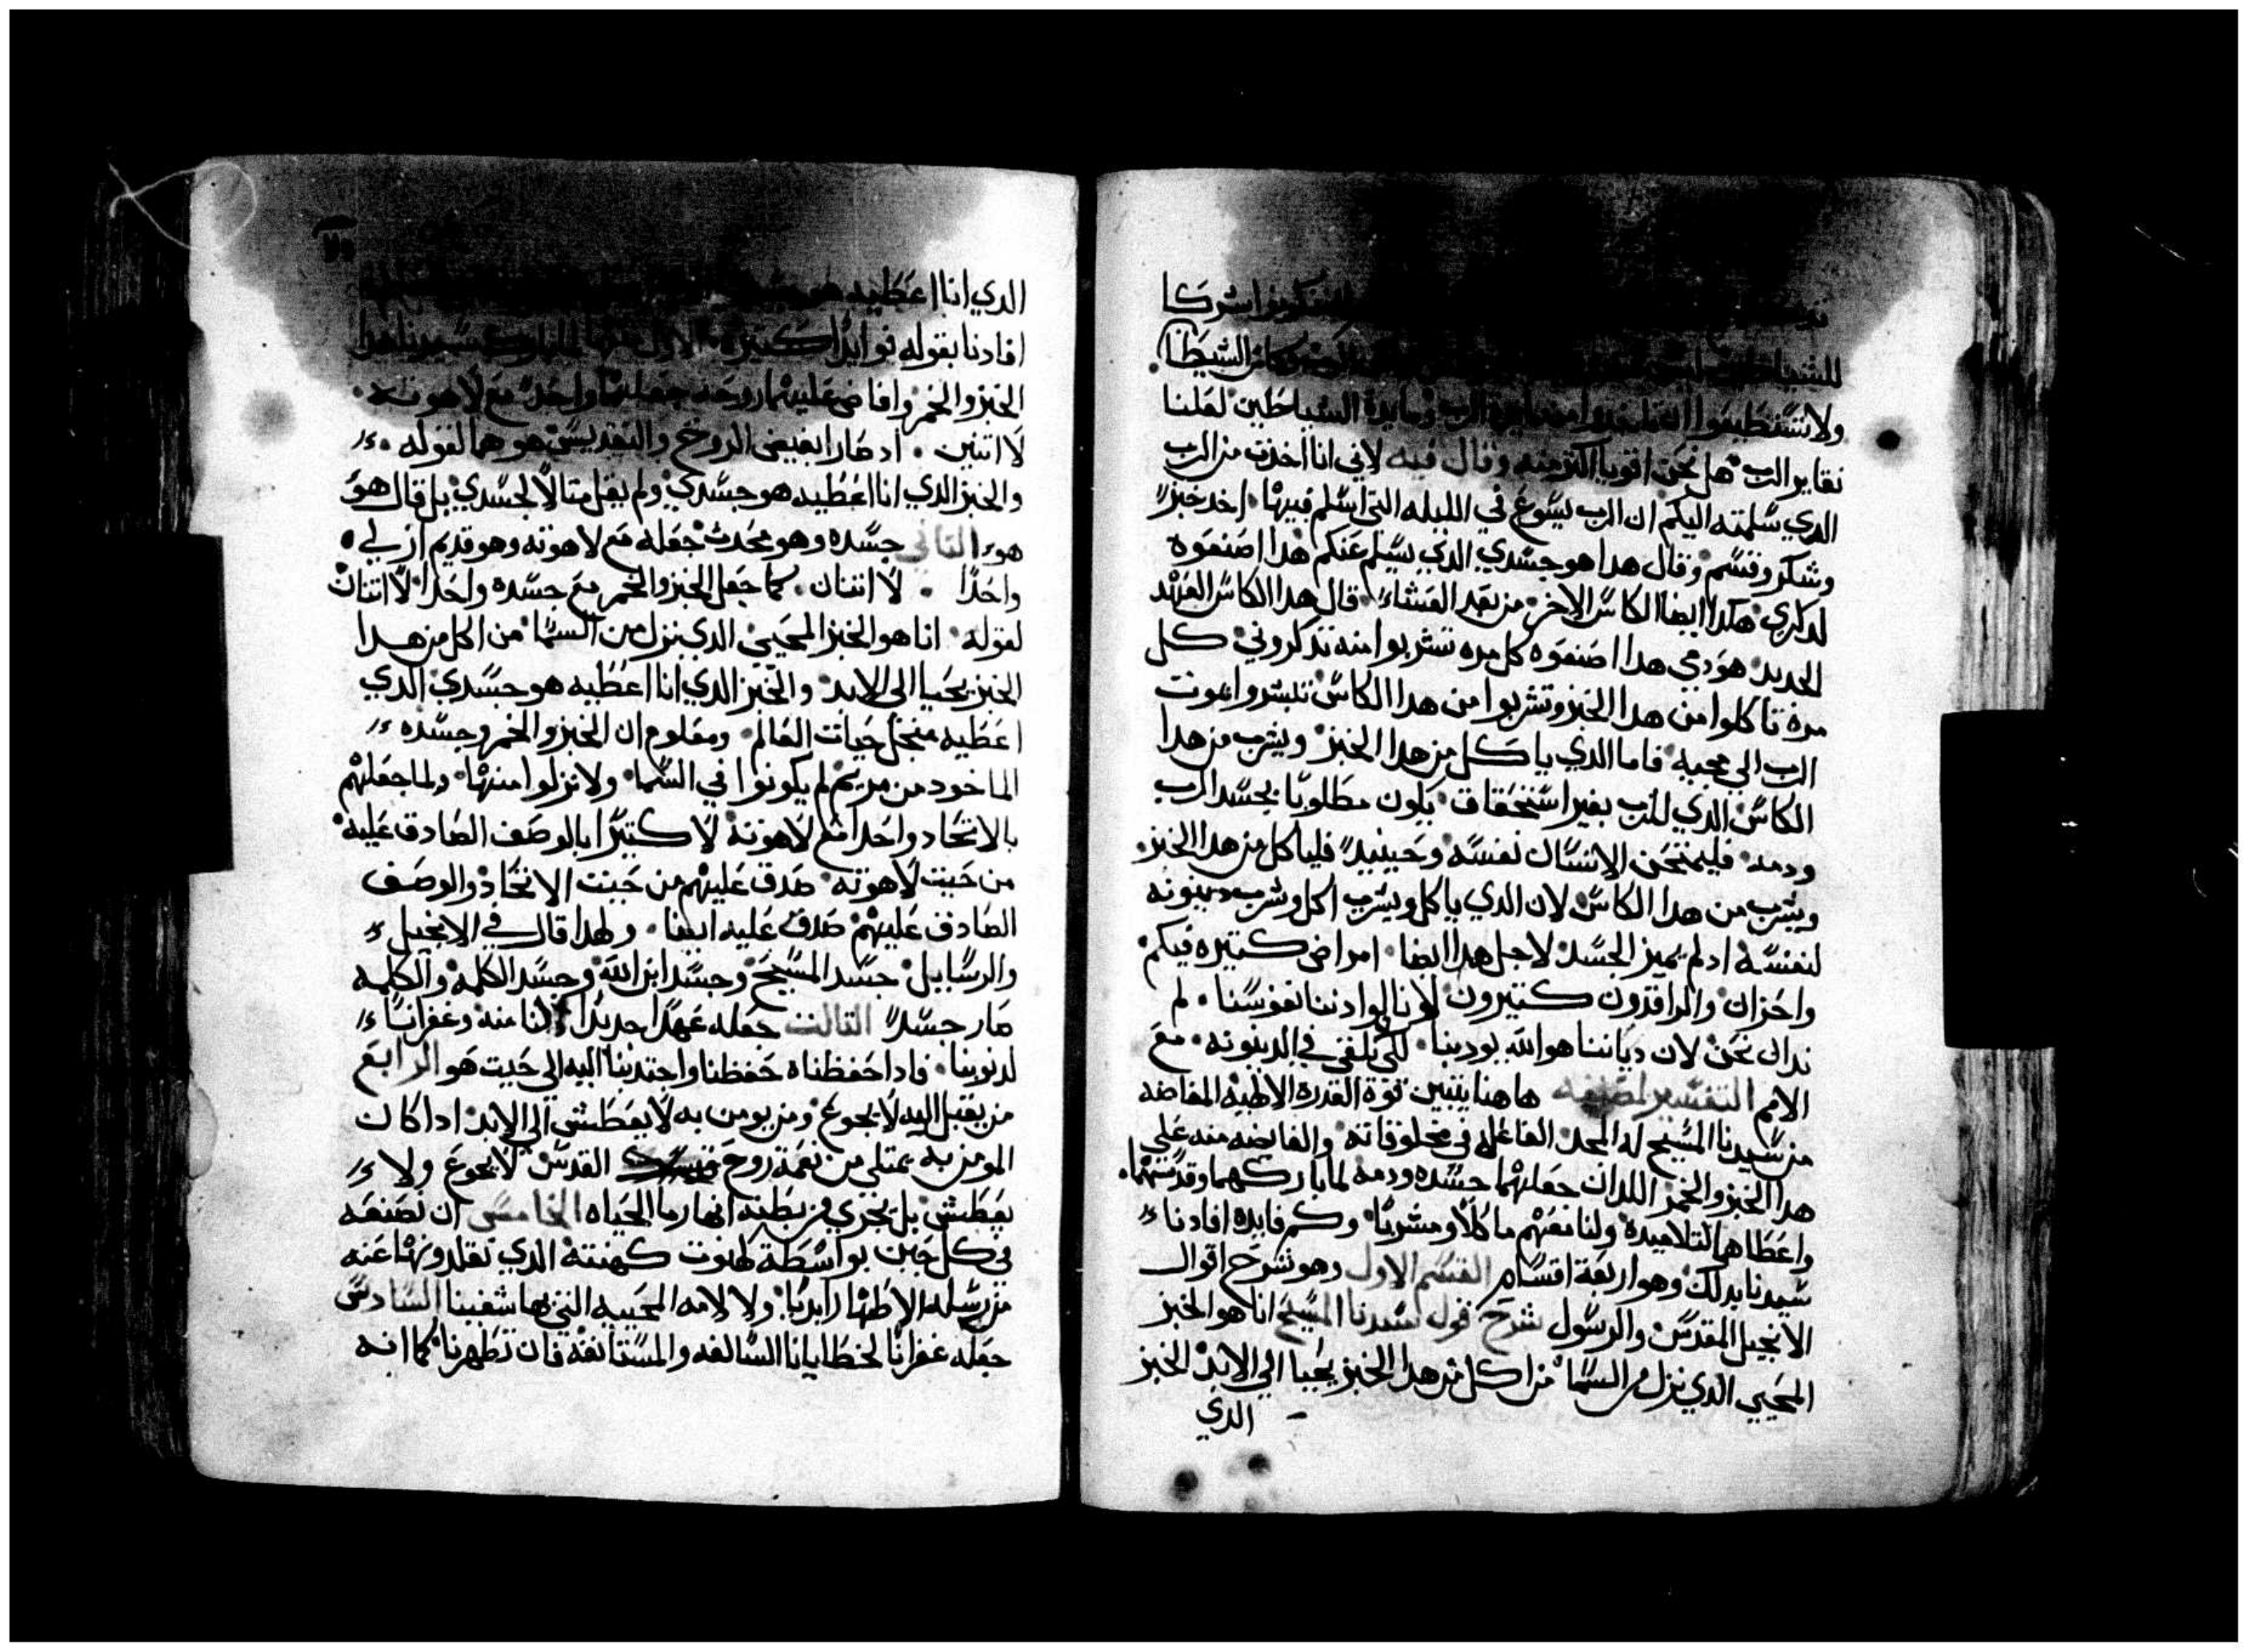 تكونوا شركا
للشياطين الشيطان
ولا تستطيعوا ان الرب ومايدة الشياطين لعلنا
نغاير الرب هل نحن اقويا اكتر منه وقال فيه لاني انا اخدت من الرب
الدي سلمته اليكم ان الرب يسوع في الليله التي اسلم فيها اخد خبزً
وشكر وقسم وقال هدا هو جسدي الدي يسلم عنكم هدا اصنعوه
لدكري هكدا ايضا الكاس الاخر من بعد العشاء قال هدا الكاس العهد
الجديد هو دمي هدا اصنعوه كل مره تشربوا منه تدكروني كل
مرة تاكلوا من هدا الخبز وتشربوا من هدا الكاس تبشروا بموت
الرب الي مجيه فاما الدي ياكل من هدا الخبز ويشرب من هدا
الكاس الدي للرب بغير استحقاق يكون مطلوبًا بجسد الرب
ودمه فليمتحن الانسان نفسه وحينيدً فلياكل من هدا الخبز
ويشرب من هدا الكاس لان الدي ياكل ويشرب اكل وشرب دينونه
لنفسه ادلم يميز الجسد لاجل هدا ايضا امراض كتيره فيكم
واحزان والراقدون كتيرون لاننا لوادننا نفوسنا لم
ندان نحن لان دياننا هو الله يودبنا لكي نلقي في الدينونه مع
الامم التفسير لمصنفه هاهنا يتبين قوة القدرة الالهيه المفاضه
من سيدنا المسيح له المجد الفاعله في مخلوقاته والفايضه منه علي
هدا الخبز والخمر اللدان جعلهما جسده ودمه لما باركهما وقدسهما
واعطاهما لتلاميده ولنا معهم ماكلًا ومشربًا وكم فايده افادنا
سيدنا بدلك وهو اربعة اقسام القسم الاول وهو شرح اقوال
الانجيل المقدس والرسول شرح قول سيدنا المسيح انا هو الخبز
المحيي الدي نزل من السما من اكل من هدا الخبز يحيا الي الابد الخبز
الدي
٧٥
الدي انا اعطيه هو
افادنا بقوله فوايدًا كتيرة الاول منها لما بارك سيدنا هدا
الخبز والخمر وافاض عليهما روحه جعلهما واحدً مع لاهوته
لا اتنين اد صارا بفيض الروح والتقديس هو هما لقوله
والخبز الدي انا اعطيه هو جسدي ولم يقل متالًا لجسدي بل قال هو
هو التاني جسده وهو محدث جعله مع لاهوته وهو قديم ازلي
واحدًا لا اتنان كما جعل الخبز والخمر مع جسده واحدا لا اتنان
لقوله انا هو الخبز المحيي الدي نزل من السما من اكل من هدا
الخبز يحيا الى الابد والخبز الدي انا اعطيه هو جسدي الدي
اعطيه منجل حيات العالم ومعلوم ان الخبز والخمر وجسده
الماخود من مريم لم يكونوا في السما ولا نزلوا منها ولما جعلهم
بالاتحاد واحدا مع لاهوته لا كتيرًا بالوصف الصادق عليه
من حيت لاهوته صدق عليهم من حيت الاتحاد والوصف
الصادق عليهم صدق عليه ايضا ولهدا قال في الانجيل
والرسايل جسد المسيح وجسد ابن الله وجسد الكلمه والكلمه
صار جسدً التالت جعله عهدًا جديدًا لنا منه وغفرانًا
لدنوبنا فادا حفظناه حفظنا واجتدبنا اليه الي حيت هو الرابع
من يقبل اليه لا يجوع ومن يومن به لا يعطش الي الابد ادا كان
المومن به يمتلي من نعمة روح القدس لا يجوع ولا
يعطش بل تجري من بطنه انهار ما الحياه الخامس ان نصنعه
في كل حين بواسطة كهنوت كهنته الدي تقلدونها عنه
من رسله الاطهار ابديًا ولالامه المحييه التي بها شفينا السادس
جعله غفرانًا لخطايانا السالفه والمستانفه فان تطهرنا كما انه